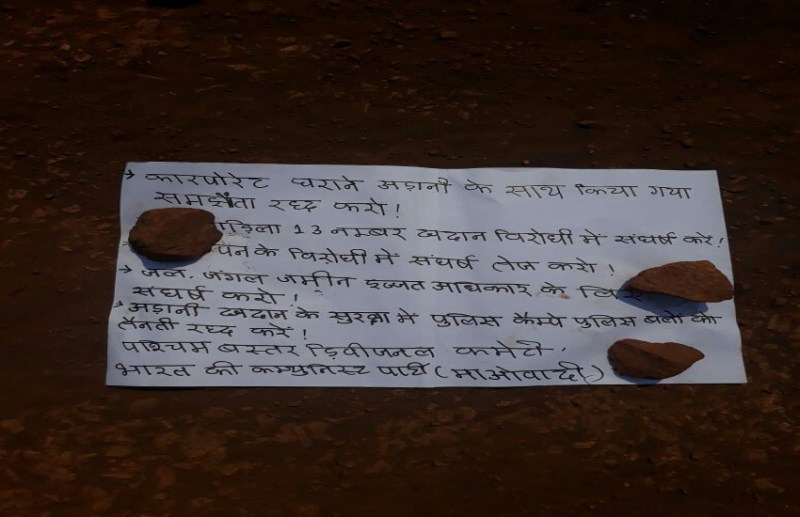 → कारपोरेट घराने अड़ानी के साथ किया गया
समझौता रध्द करो!
ड़िला 13 नम्बर खदान विरोधी में संघर्ष करें!
के विरोधी में संघर्ष तेज करो!
→ जल, जंगल जमीन इज्जत अधिकार के
संघर्ष करो!
→ अड़ानी खदान के सुरक्षा में पुलिस कैम्पे पुलिस बलों की
तैनती रध्द करें!
पश्चिम बस्तर डिवीजनल कमेटी
भारत की कम्युनिस्ट पार्टी (माओवादी)